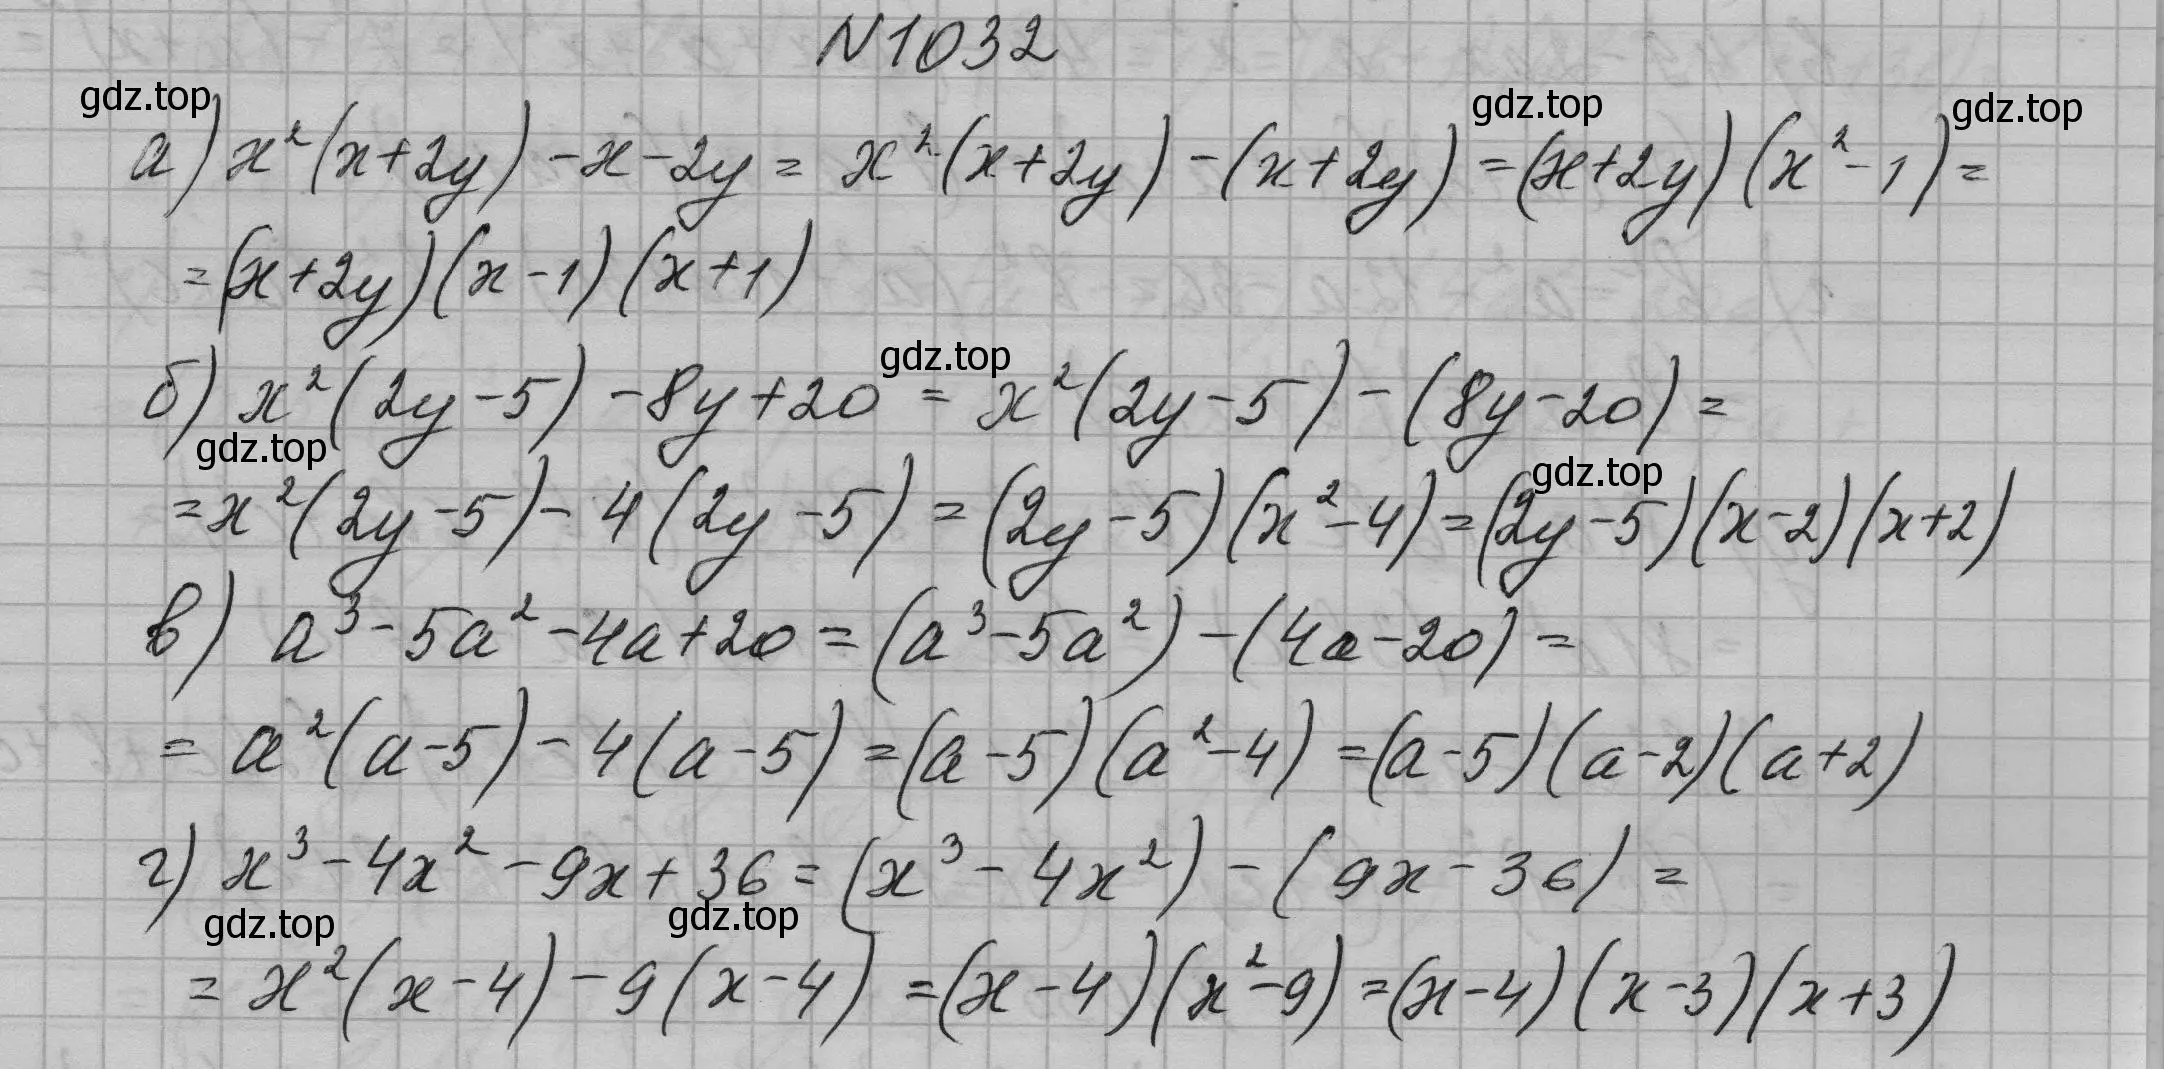 N1032
gdz.top gdz.top gdz.top
а) x²(x+2y)-x-2y= x²(x+2y)-(x+2y)=(x+2y)(x²-1)=
=(x+2y)(x-1)(x+1)
gdz.top
б) x²(2y-5)-8y+20 = x²(2y-5)-(8y-20)=
gdz.top gdz.top
=x²(2y-5)-4(2y-5)=(2y-5)(x²-4)=(2y-5)(x-2)(x+2)
в) a³-5a²-4a+20=(a³-5a²)-(4a-20)=
= a²(a-5)-4(a-5)=(a-5)(a²-4)=(a-5)(a-2)(a+2)
г) x³-4x²-9x+36=(x³-4x²)-(9x-36)=
gdz.top gdz.top
= x²(x-4)-9(x-4)=(x-4)(x²-9)=(x-4)(x-3)(x+3)